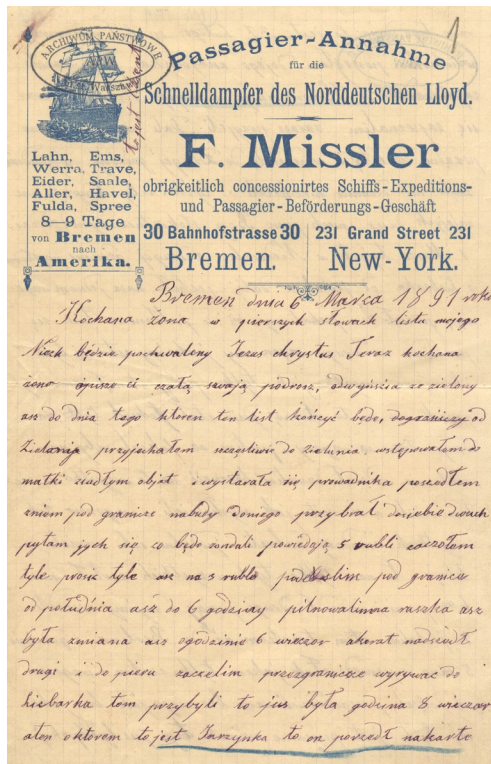 ARCHIWUM PAŃSTWOWE
to jest
1
Passagier-Annahme
für die
Schnelldampfer des Norddeutschen Lloyd.
F. Missler
obrigkeitlich concessionirtes Schiffs-Expeditions-
und Passagier-Beförderungs-Geschäft
30 Bahnhofstrasse 30
Bremen.
231 Grand Street 231
New-York.
Lahn, Ems,
Werra, Trave,
Eider, Saale,
Aller, Havel,
Fulda, Spree
8—9 Tage
von Bremen
nach
Amerika.
Bremen dnia 6 Marca 1891 roku
Kochana żona w pierszych słowach listu mojego
Niech będzie pochwalony Jezus chrystus Teraz kochana
żono opisze ci czałą swają podrosz, odwyńścia ze zielony
asz do dnia tego ktoren ten list kończyć będe, dograniczy od
Zielonyj przyjechałem szczęśliwie do Zielunia, wstępowałem do
matki ziadłym objat i wystarała się prowadnika poszedłem
zniem pod granice nabudy doniego przybrał dosiebie dwuch
pytam jych się co będo rondali powiedają 5 rubli zaczołem
tyle prosic tyle asz na 3 ruble podeszlim pod granicu
od południa asz do 6 godziny pilnowalimna raszka asz
była zmiana asz ogodzinie 6 wieczor akorat nadszedł
drugi i do pieru zaczelim przezgranicze wyrywac do
Liebarka tem przybyli to jus była godzina 8 wieczor
aten oktorem to jest Jarzynka to on poszedł nakarte